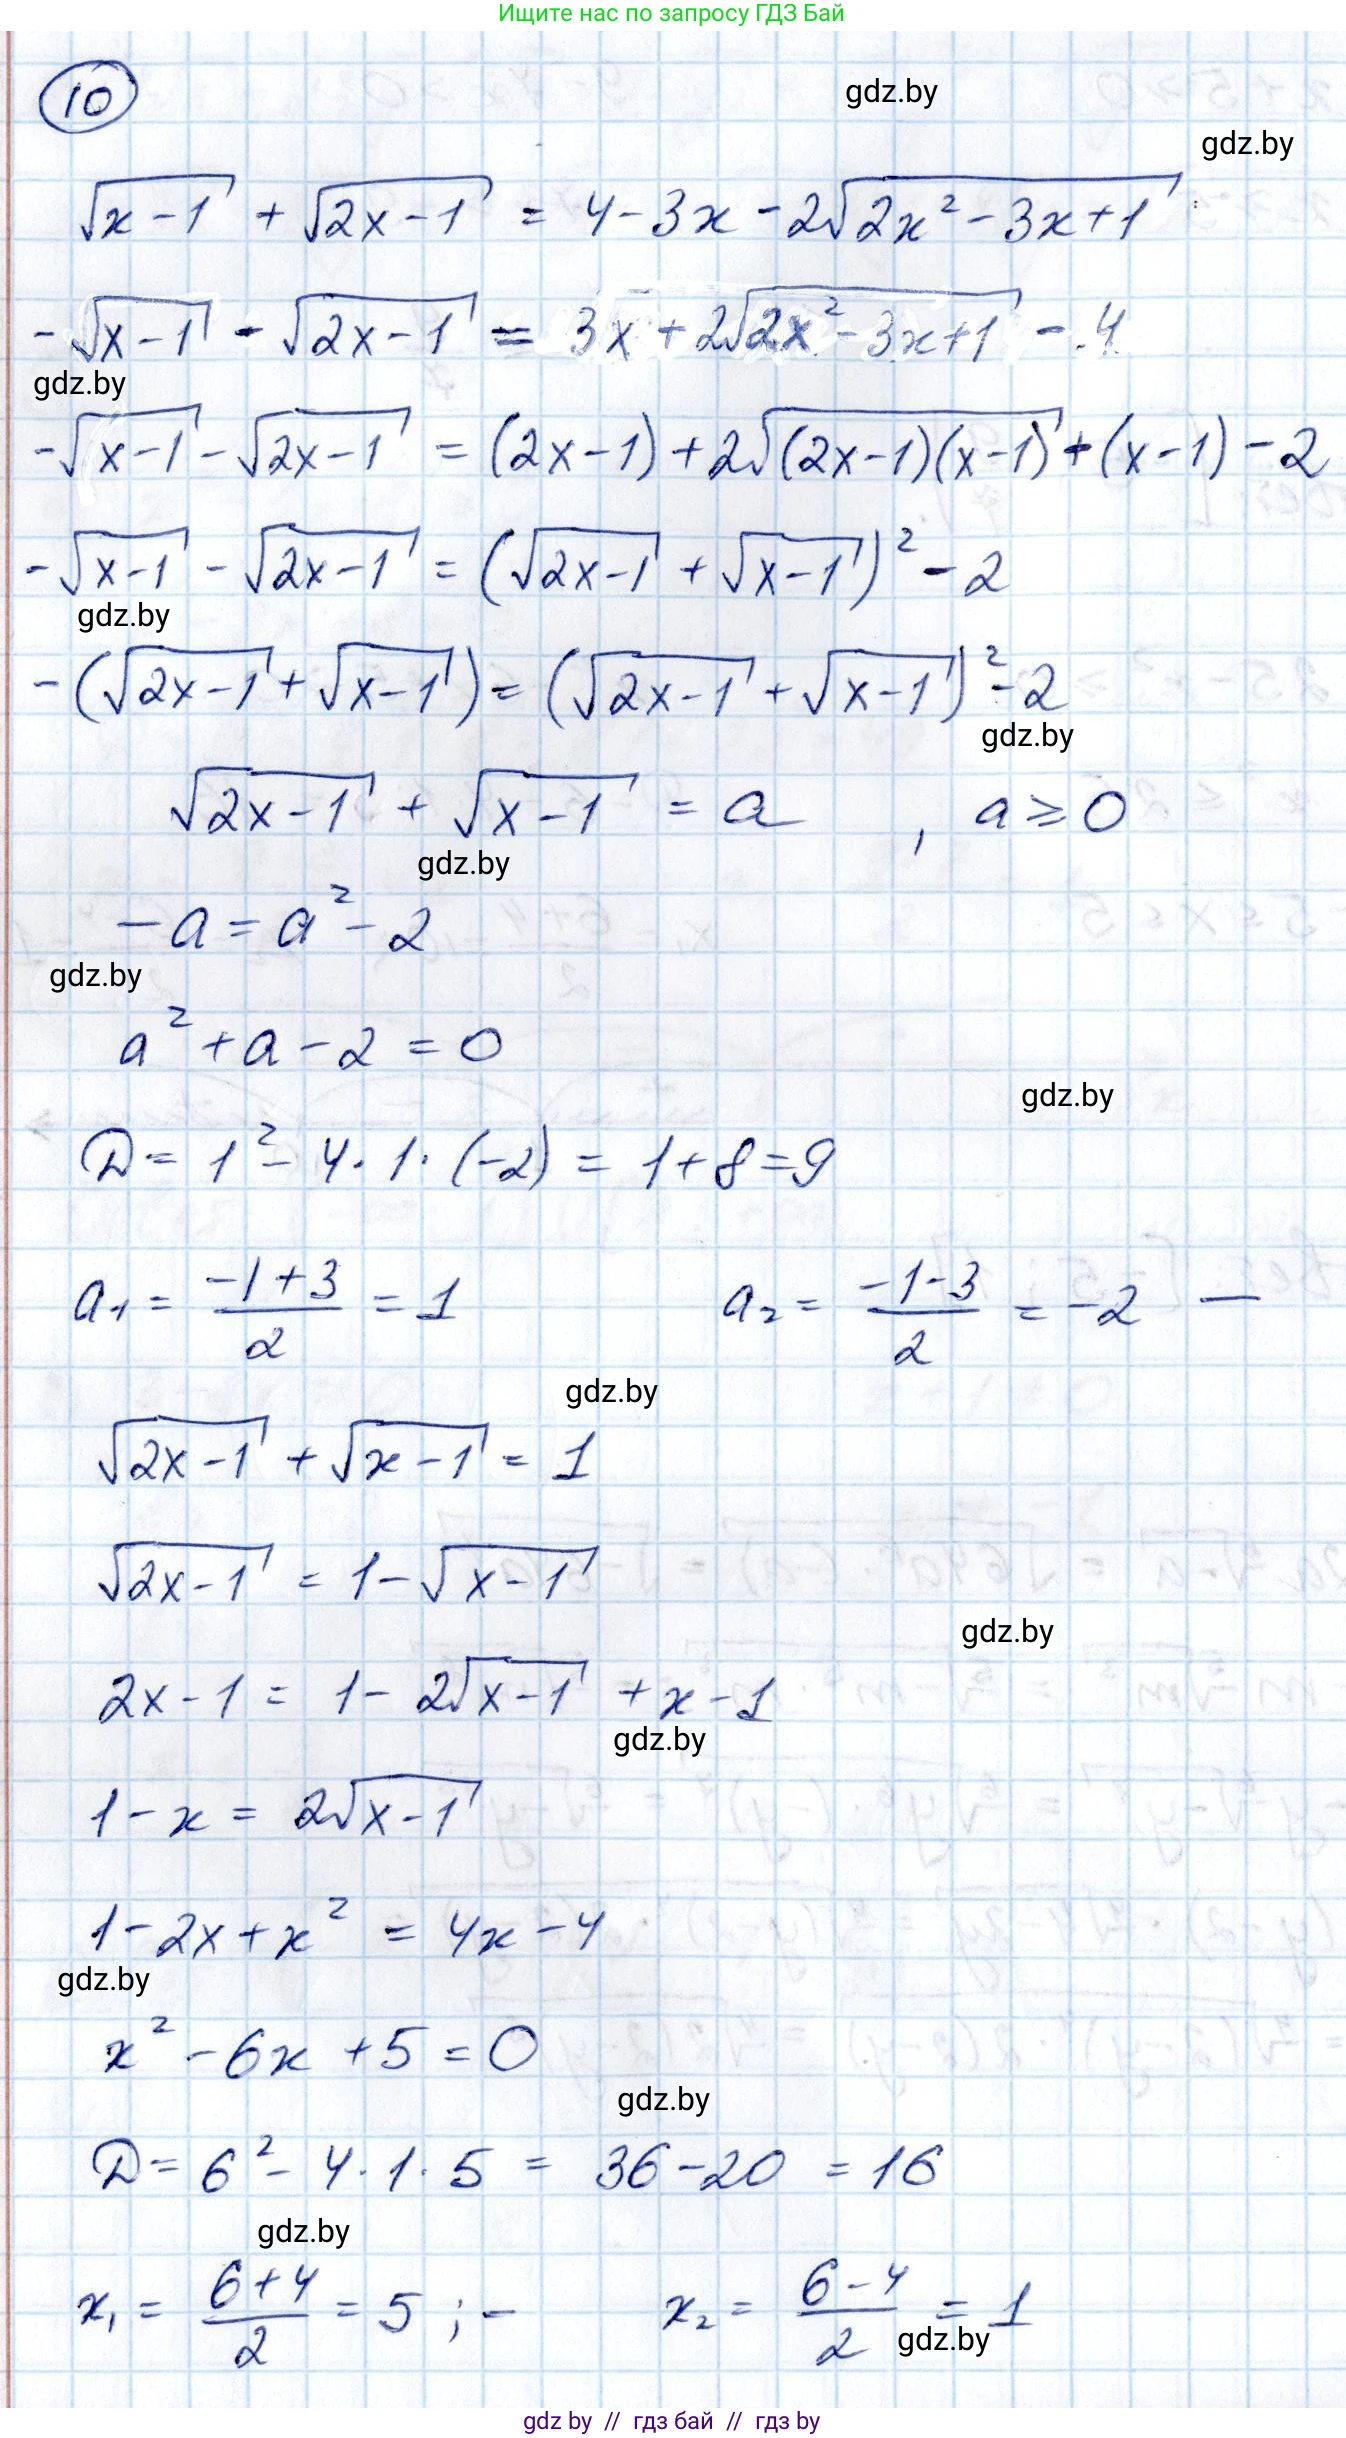 Ищите нас по запросу ГДЗ Бай
10
gdz.by
gdz.by
√(x-1) + √(2x-1) = 4-3x-2√(2x²-3x+1)
-√(x-1) - √(2x-1) = 3x+2√(2x²-3x+1) - 4
gdz.by
-√(x-1) - √(2x-1) = (2x-1)+2√((2x-1)(x-1))+(x-1)-2
-√(x-1) - √(2x-1) = (√(2x-1) + √(x-1))² - 2
gdz.by
-(√(2x-1) + √(x-1)) = (√(2x-1) + √(x-1))² - 2
gdz.by
√(2x-1) + √(x-1) = a , a ≥ 0
gdz.by
-a = a² - 2
gdz.by
a² + a - 2 = 0
gdz.by
D = 1² - 4·1·(-2) = 1+8 = 9
a₁ = (-1+3)/2 = 1 a₂ = (-1-3)/2 = -2 —
gdz.by
√(2x-1) + √(x-1) = 1
√(2x-1) = 1 - √(x-1)
gdz.by
2x-1 = 1 - 2√(x-1) + x-1
gdz.by
1-x = 2√(x-1)
1-2x+x² = 4x-4
gdz.by
x² - 6x + 5 = 0
gdz.by
D = 6² - 4·1·5 = 36-20 = 16
gdz.by
x₁ = (6+4)/2 = 5 ; - x₂ = (6-4)/2 = 1
gdz.by
gdz by // гдз бай // гдз by